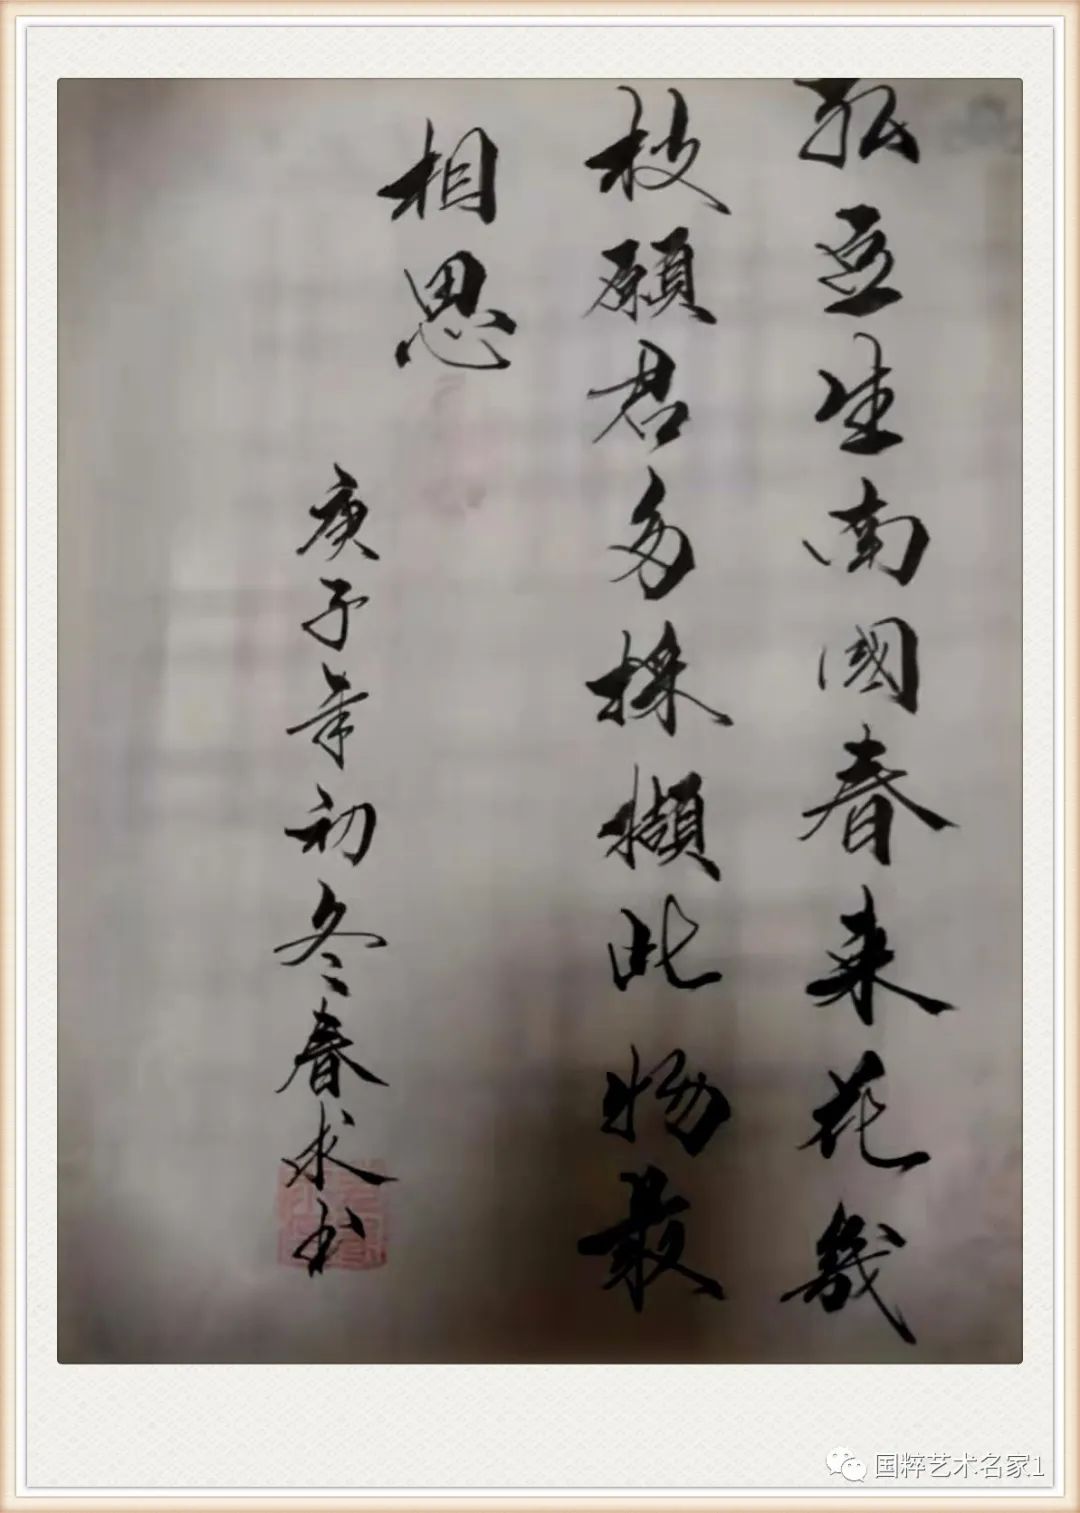 红豆生南國春来花幾
枝願君多採擷此物最
相思
庚子年初冬春求书
国粹艺术名家1